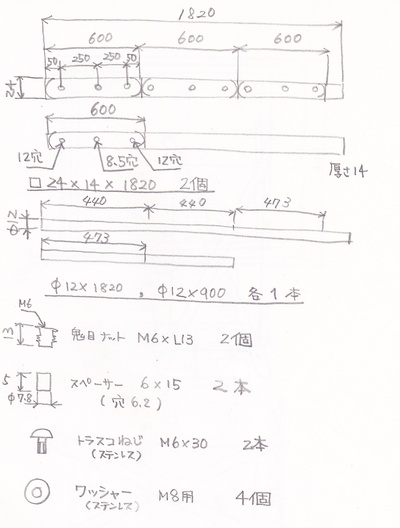 1820
600 600 600
50 250 250 50
24
600
12穴 8.5穴 12穴
厚さ14
□ 24×14×1820 2個
440 440 473
φ12
473
φ12×1820 , φ12×900 各1本
M6
13
鬼目ナット M6×L13 2個
5
φ7.8
スペーサー 6×15 2本
(穴6.2)
トラスコねじ M6×30 2本
(ステンレス)
ワッシャー M8用 4個
(ステンレス)